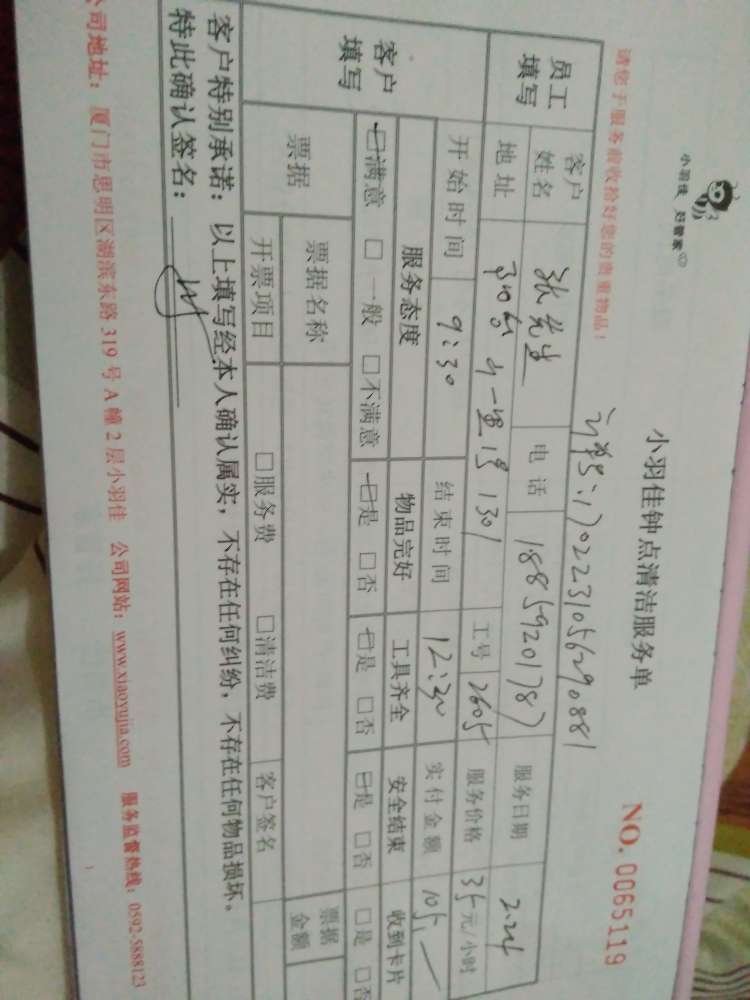 小羽佳 好管家
小羽佳钟点清洁服务单
NO. 0065119
请您于服务前收拾好您的贵重物品！
1702231056290881
员工填写 客户姓名 张先生 电话 18859201787 服务日期 2.24
地址 1号1301 工号 2605 服务价格 35元/小时
开始时间 9:30 结束时间 12:30 实付金额 105.一
客户填写 服务态度 物品完好 工具齐全 安全结束 收到卡片
□满意 □一般 □不满意 □是 □否 □是 □否 □是 □否 □是 □否
票据 票据名称 票据金额
开票项目 □服务费 □清洁费 客户签名
客户特别承诺：以上填写经本人确认属实，不存在任何纠纷，不存在任何物品损坏。
特此确认签名：
公司地址：厦门市思明区湖滨东路319号A幢2层小羽佳 公司网站：www.xiaoyujia.com 服务监督热线：0592-5888123